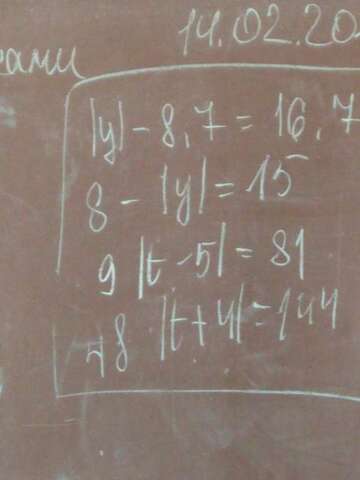 14.02.20
ами
|y| - 8,7 = 16,7
8 - |y| = 15
9 |t - 5| = 81
48 |t + 4| = 144